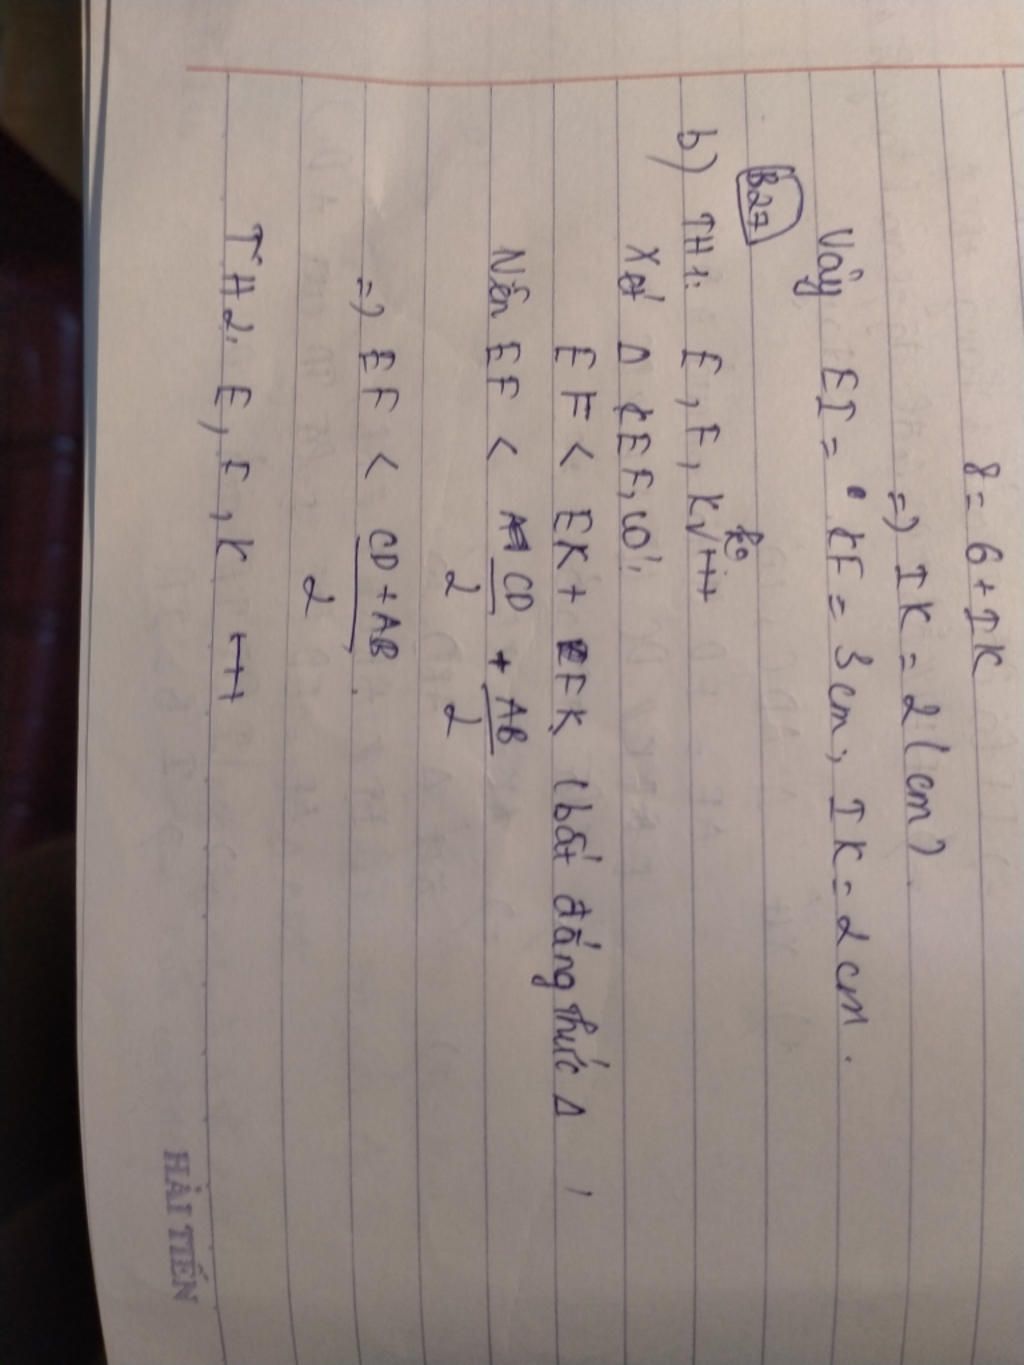 8 = 6 + IK
=> IK = 2 (cm)
Vậy EI = KF = 3cm, IK = 2cm.
B27
b) TH1: E, F, K ko t/h
Xét Δ KEF, có:
EF < EK + FK (bất đẳng thức Δ)
Nên EF < CD/2 + AB/2
=> EF < (CD + AB)/2.
TH2: E, F, K t/h
HẢI TIẾN